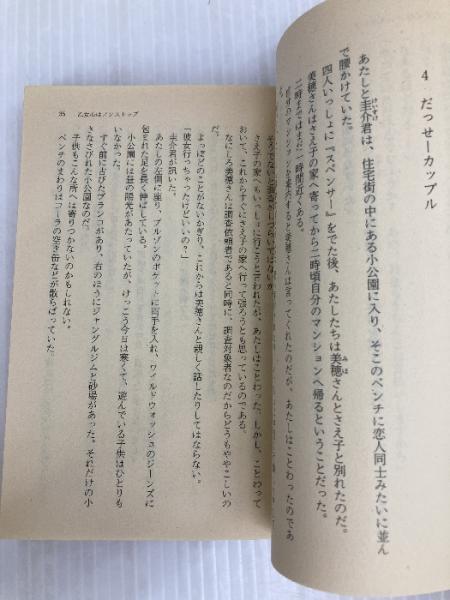 4 だっせーカップル
あたしと圭介君は、住宅街の中にある小公園に入り、そこのベンチに恋人同士みたいに並ん
で腰かけていた。
四人いっしょに『スペンサー』をでた後、あたしたちは美穂さんとさえ子と別れたのだ。
美穂さんはさえ子の家へ寄ってから二時頃自分のマンションへ帰るということだった。
二時まではまだ一時間近くある。
のマンションを案内すると美穂さんは言ってくれたのだが、あたしはことわったのであ
乙女心はノンストップ
そうでないと調査がしづらいではないか。
さえ子の家へもいっしょに行こうと言われたが、あたしはことわった。しかし、ことわって
おいて、これからすぐにさえ子の家へ行って張ろうとも思っているのである。
なにしろ美穂さんは調査依頼者であると同時に、調査対象者なのだからどうもややこしいの
だ。
よっぽどのことがないかぎり、これからは美穂さんと親しく話したりしてはならない。
「彼女行っちゃったけどいいの？」
圭介君が訊いた。
あたしの左側に座り、ブルゾンのポケットに両手を入れ、ワイルドウォッシュのジーンズに
包まれた足を長く伸ばしている。
小公園には昼の陽光があたっていたが、けっこう今日は寒くて、遊んでいる子供はひとりも
いなかった。
すぐ前に古びたブランコがあり、右のほうにジャングルジムと砂場があった。それだけの小
さなさびれた小公園なのだ。
子供もこんな所へは寄りつかないのかもしれない。
ベンチのまわりはコーラの空き缶などが散らばっていた。